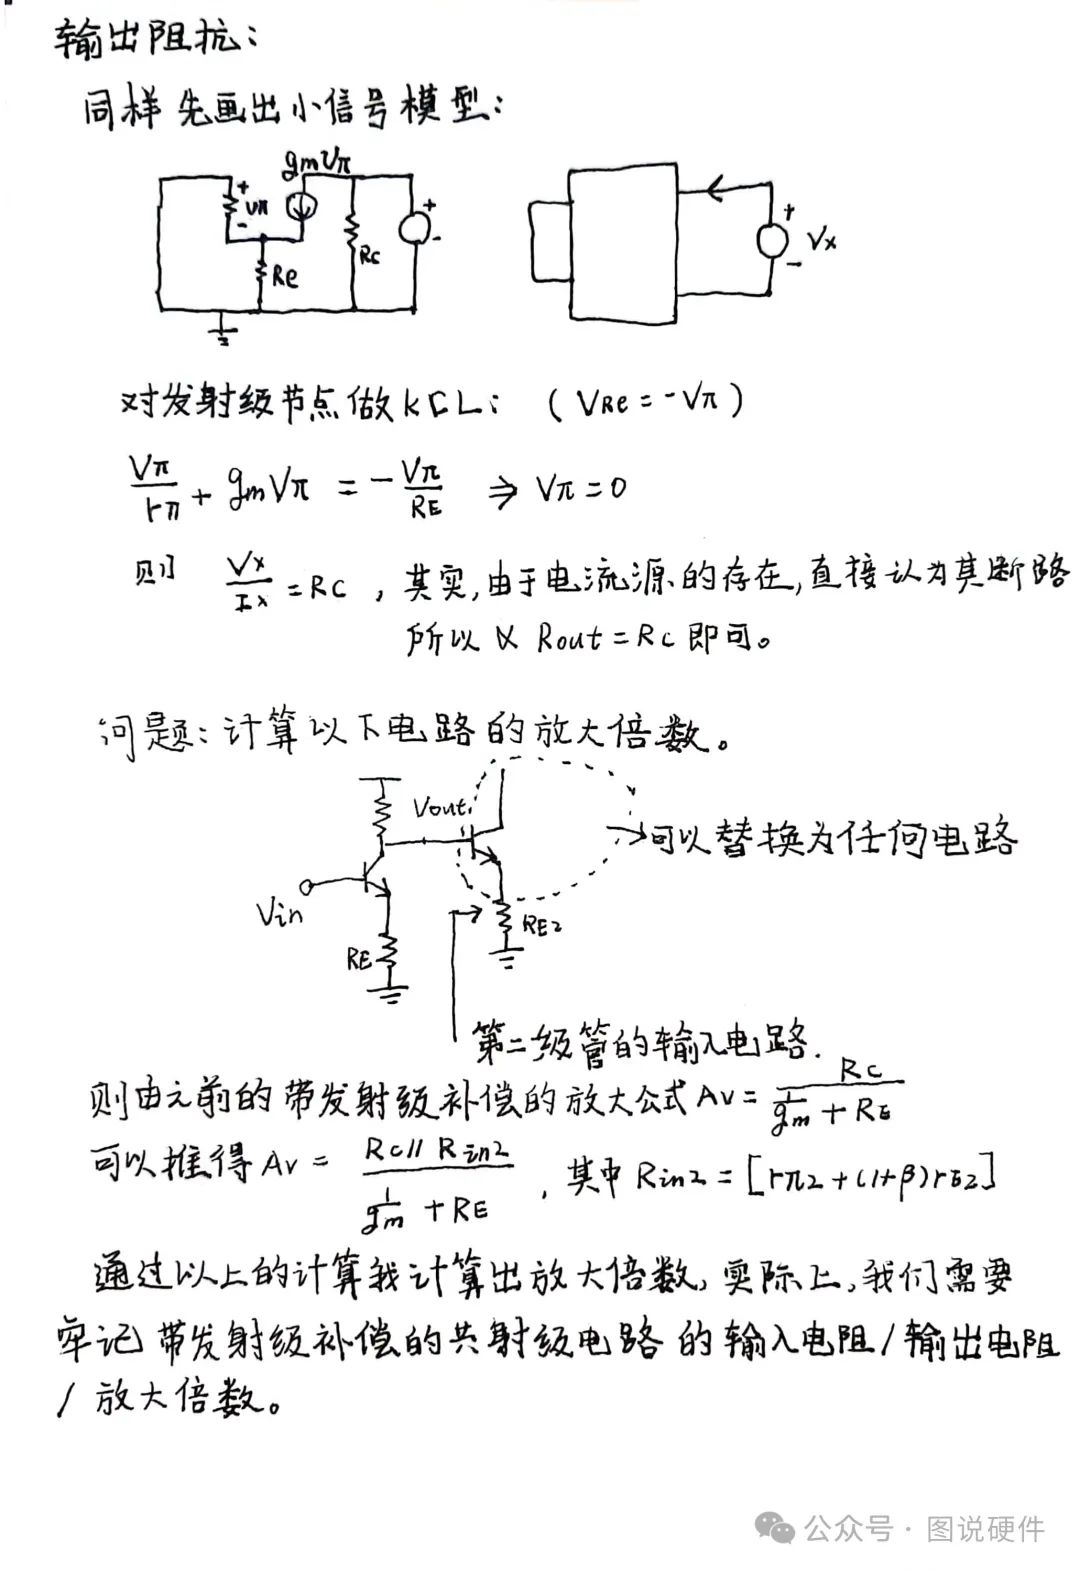 输出阻抗：
同样先画出小信号模型：
gmVπ
+
Vπ
-
Re
Rc
+
-
+
Vx
-
对发射级节点做KCL：（VRe=-Vπ）
Vπ/rπ + gmVπ = -Vπ/RE ⇒ Vπ=0
则 Vx/Ix = RC，其实，由于电流源的存在，直接认为其断路
所以 Rout=Rc即可。
问题：计算以下电路的放大倍数。
Vout
可以替换为任何电路
Vin
RE2
RE
第二级管的输入电路.
则由之前的带发射级补偿的放大公式 Av = Rc/(1/gm + RE)
可以推得 Av = Rc//Rin2/(1/gm + RE)，其中 Rin2 = [rπ2+(1+β)rE2]
通过以上的计算我计算出放大倍数，实际上，我们需要
牢记带发射级补偿的共射级电路的输入电阻/输出电阻
/放大倍数。
公众号·图说硬件